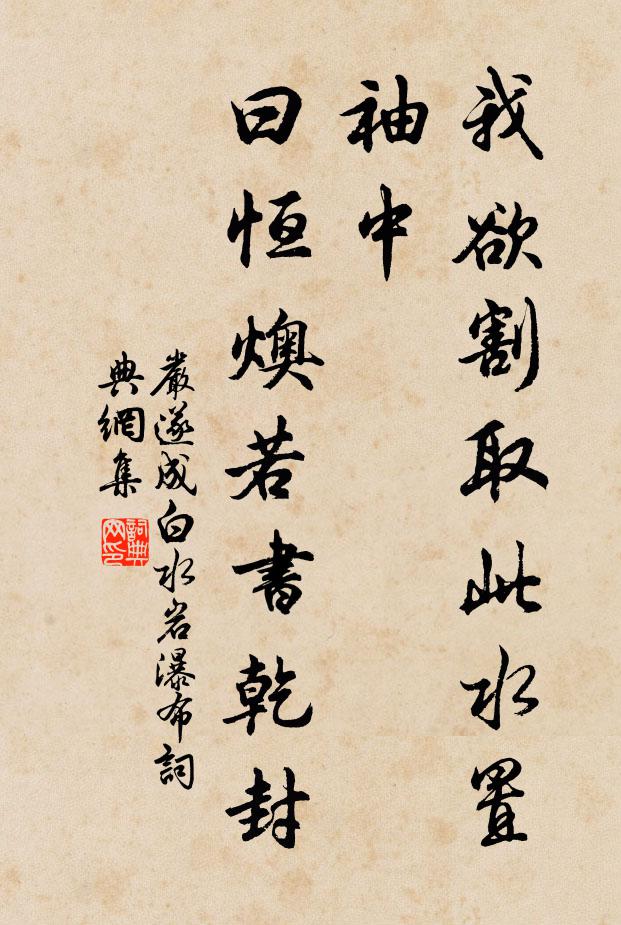 我欲割取此水置
袖中
曰恒燠若書乾封
嚴遂成白水岩瀑布詞
典網集
詞典
网印